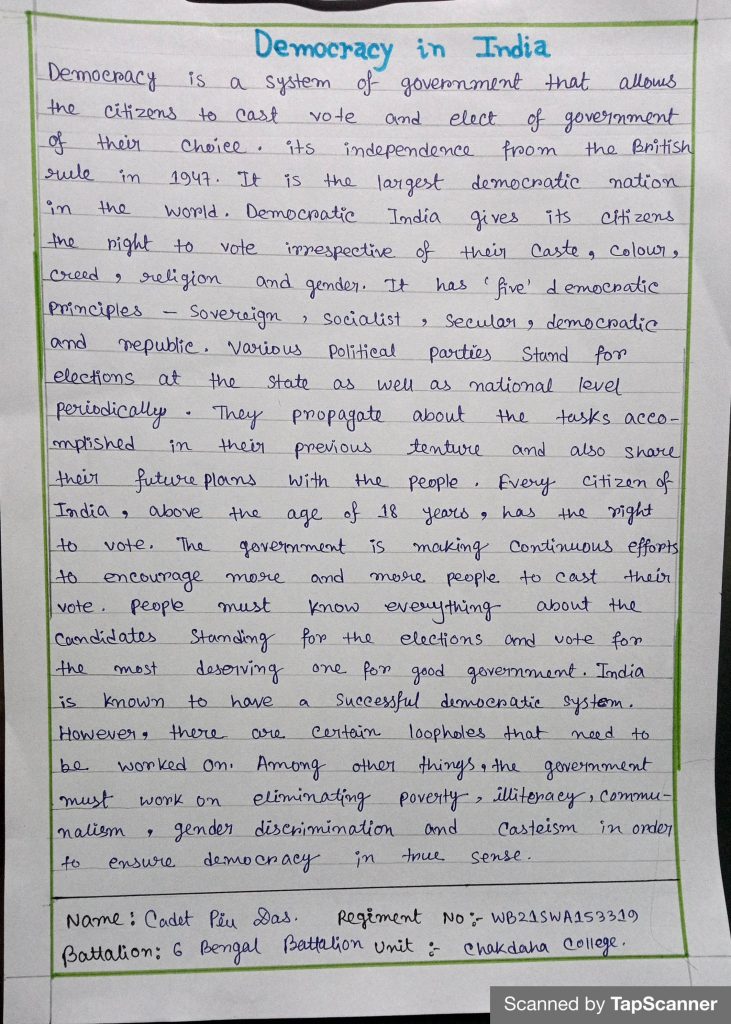 Democracy in India
Democracy is a system of government that allows
the citizens to cast vote and elect of government
of their choice. its independence from the British
rule in 1947. It is the largest democratic nation
in the world. Democratic India gives its citizens
the right to vote irrespective of their caste, colour,
creed, religion and gender. It has 'five' democratic
principles - sovereign, socialist, secular, democratic
and republic. various political parties stand for
elections at the state as well as national level
periodically. They propagate about the tasks acco-
mplished in their previous tenture and also share
their future plans with the people. Every citizen of
India, above the age of 18 years, has the right
to vote. The government is making continuous efforts
to encourage more and more people to cast their
vote. people must know everything about the
candidates standing for the elections and vote for
the most deserving one for good government. India
is known to have a successful democratic system.
However, there are certain loopholes that need to
be worked on. Among other things, the government
must work on eliminating poverty, illiteracy, commu-
nalism, gender discrimination and casteism in order
to ensure democracy in true sense.
Name: Cadet Piu Das. Regiment No :- WB21SWA153319
Battalion: 6 Bengal Battalion Unit :- Chakdaha College.
Scanned by TapScanner